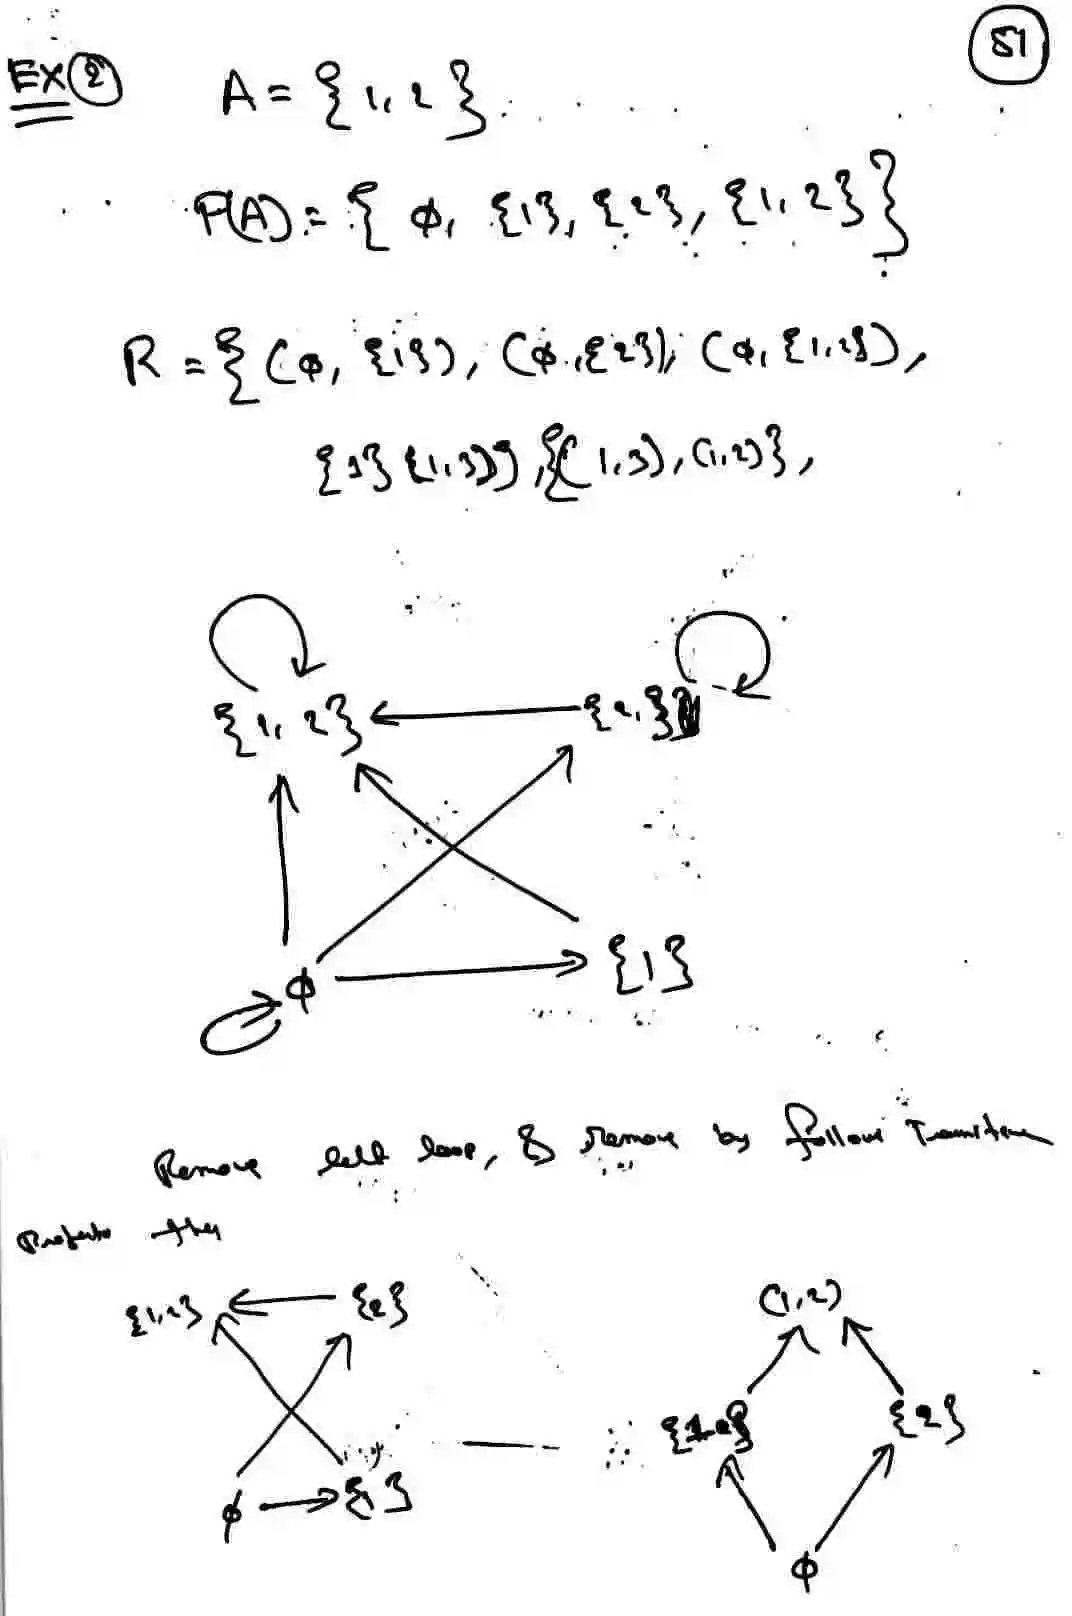 51
EX 2 A = {1, 2}
P(A) = { φ, {1}, {2}, {1, 2} }
R = { (φ, {1}), (φ, {2}), (φ, {1, 2}),
{1} {1, 3})} , {( 1, 3), (1, 2)} ,
{1, 2} {2, }
φ {1}
Remove self loop, & remove by follow Transitive
{1,2} {2} (1,2)
{2}
φ {1}
φ